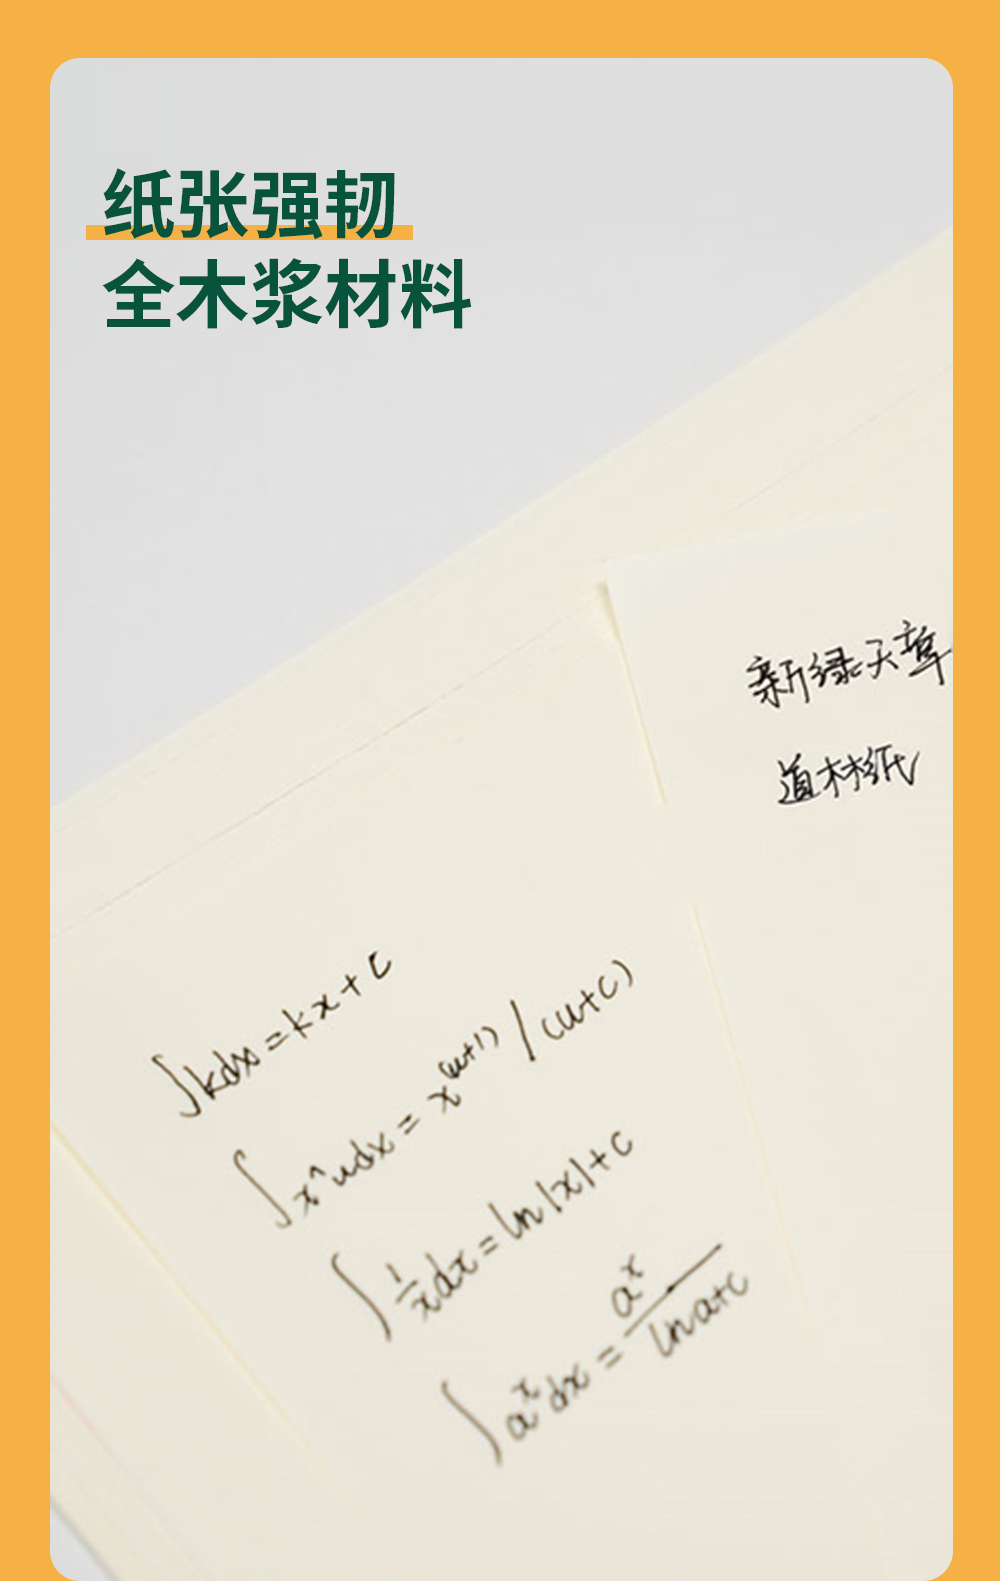 纸张强韧
全木浆材料
新绿天章
道林纸
∫kdx=kx+c
∫x^udx=x^(u+1)/(u+c)
∫1/x dx=ln|x|+c
∫a^x dx=a^x/lna+c